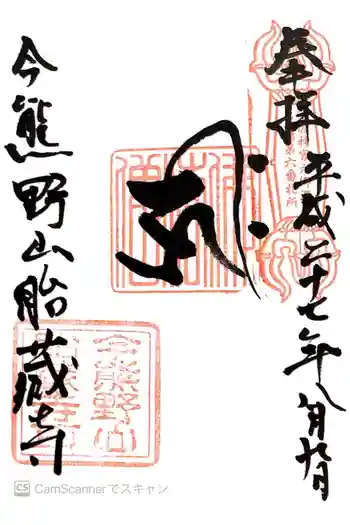 奉拝 平成二十七年八月九日
今熊野山胎蔵寺
今熊野山
第六番札所
CamScannerでスキャン